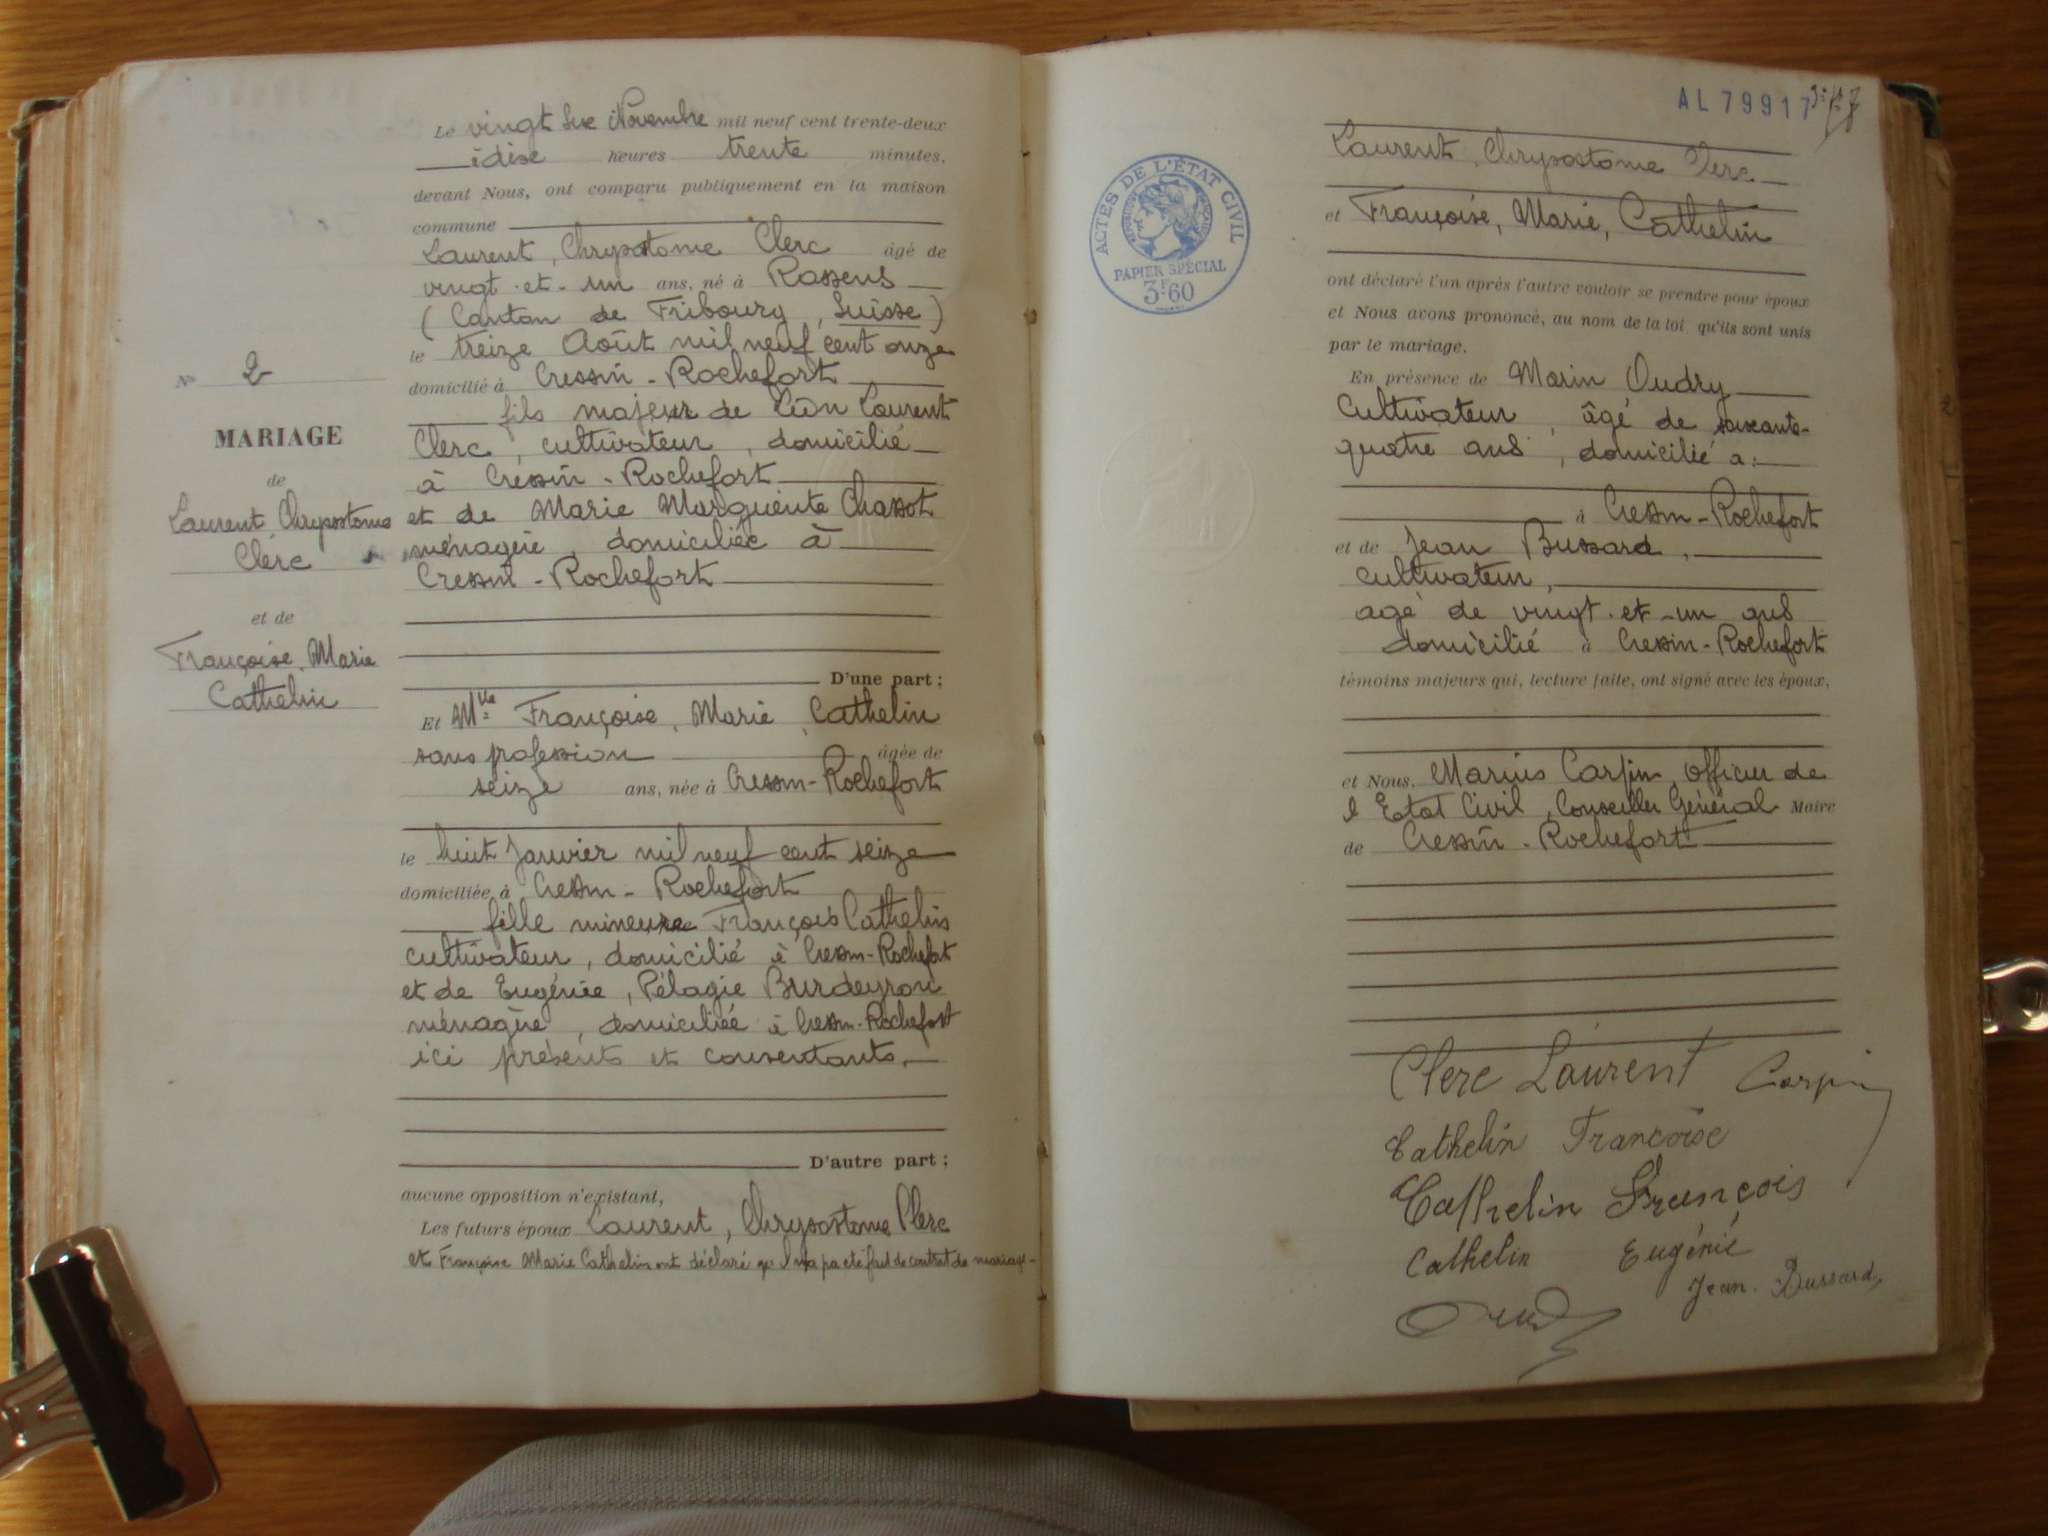 Le vingt six Novembre mil neuf cent trente-deux
à dixe heures trente minutes.
devant Nous, ont comparu publiquement en la maison
commune
Laurent, Chrysostome Clerc âgé de
vingt-et-un ans, né à Rossens
(Canton de Fribourg, Suisse)
le treize Août mil neuf cent onze
domicilié à Cressin-Rochefort
fils majeur de Léon Laurent
Clerc, cultivateur, domicilié
à Cressin-Rochefort
et de Marie Marguerite Chassot
ménagère, domiciliée à
Cressin-Rochefort
D'une part;
Et Mlle Françoise, Marie, Cathelin
sans profession âgée de
seize ans, née à Cressin-Rochefort
le huit Janvier mil neuf cent seize
domiciliée à Cressin-Rochefort
fille mineure François Cathelin
cultivateur, domicilié à Cressin-Rochefort
et de Eugénie, Pélagie Burdeyron
ménagère, domiciliée à Cressin-Rochefort
ici présents et consentants.
D'autre part;
aucune opposition n'existant,
Les futurs époux Laurent, Chrysostome Clerc
et Françoise Marie Cathelin ont déclaré qu'il n'a pa eté fait de contrat de mariage
No 2
MARIAGE
de
Laurent Chrysostome
Clerc
et de
Françoise, Marie
Cathelin
AL 79917
ACTES DE L'ÉTAT CIVIL
PAPIER SPÉCIAL
3F60
Laurent, Chrysostome Clerc
et Françoise, Marie, Cathelin
ont déclaré l'un après l'autre vouloir se prendre pour époux
et Nous avons prononcé, au nom de la loi qu'ils sont unis
par le mariage.
En présence de Marin Oudry
Cultivateur, âgé de soixante-
quatre ans, domicilié a:
à Cressin-Rochefort
et de Jean Bussard,
cultivateur,
agé de vingt-et-un ans
domicilié à Cressin-Rochefort
témoins majeurs qui, lecture faite, ont signé avec les époux,
et Nous, Marius Carpin, officier de
l'Etat Civil, Conseiller Général Maire
de Cressin-Rochefort
Clerc Laurent Carpin
Cathelin Françoise
Cathelin François
Cathelin Eugénie
Jean Bussard
Oudry